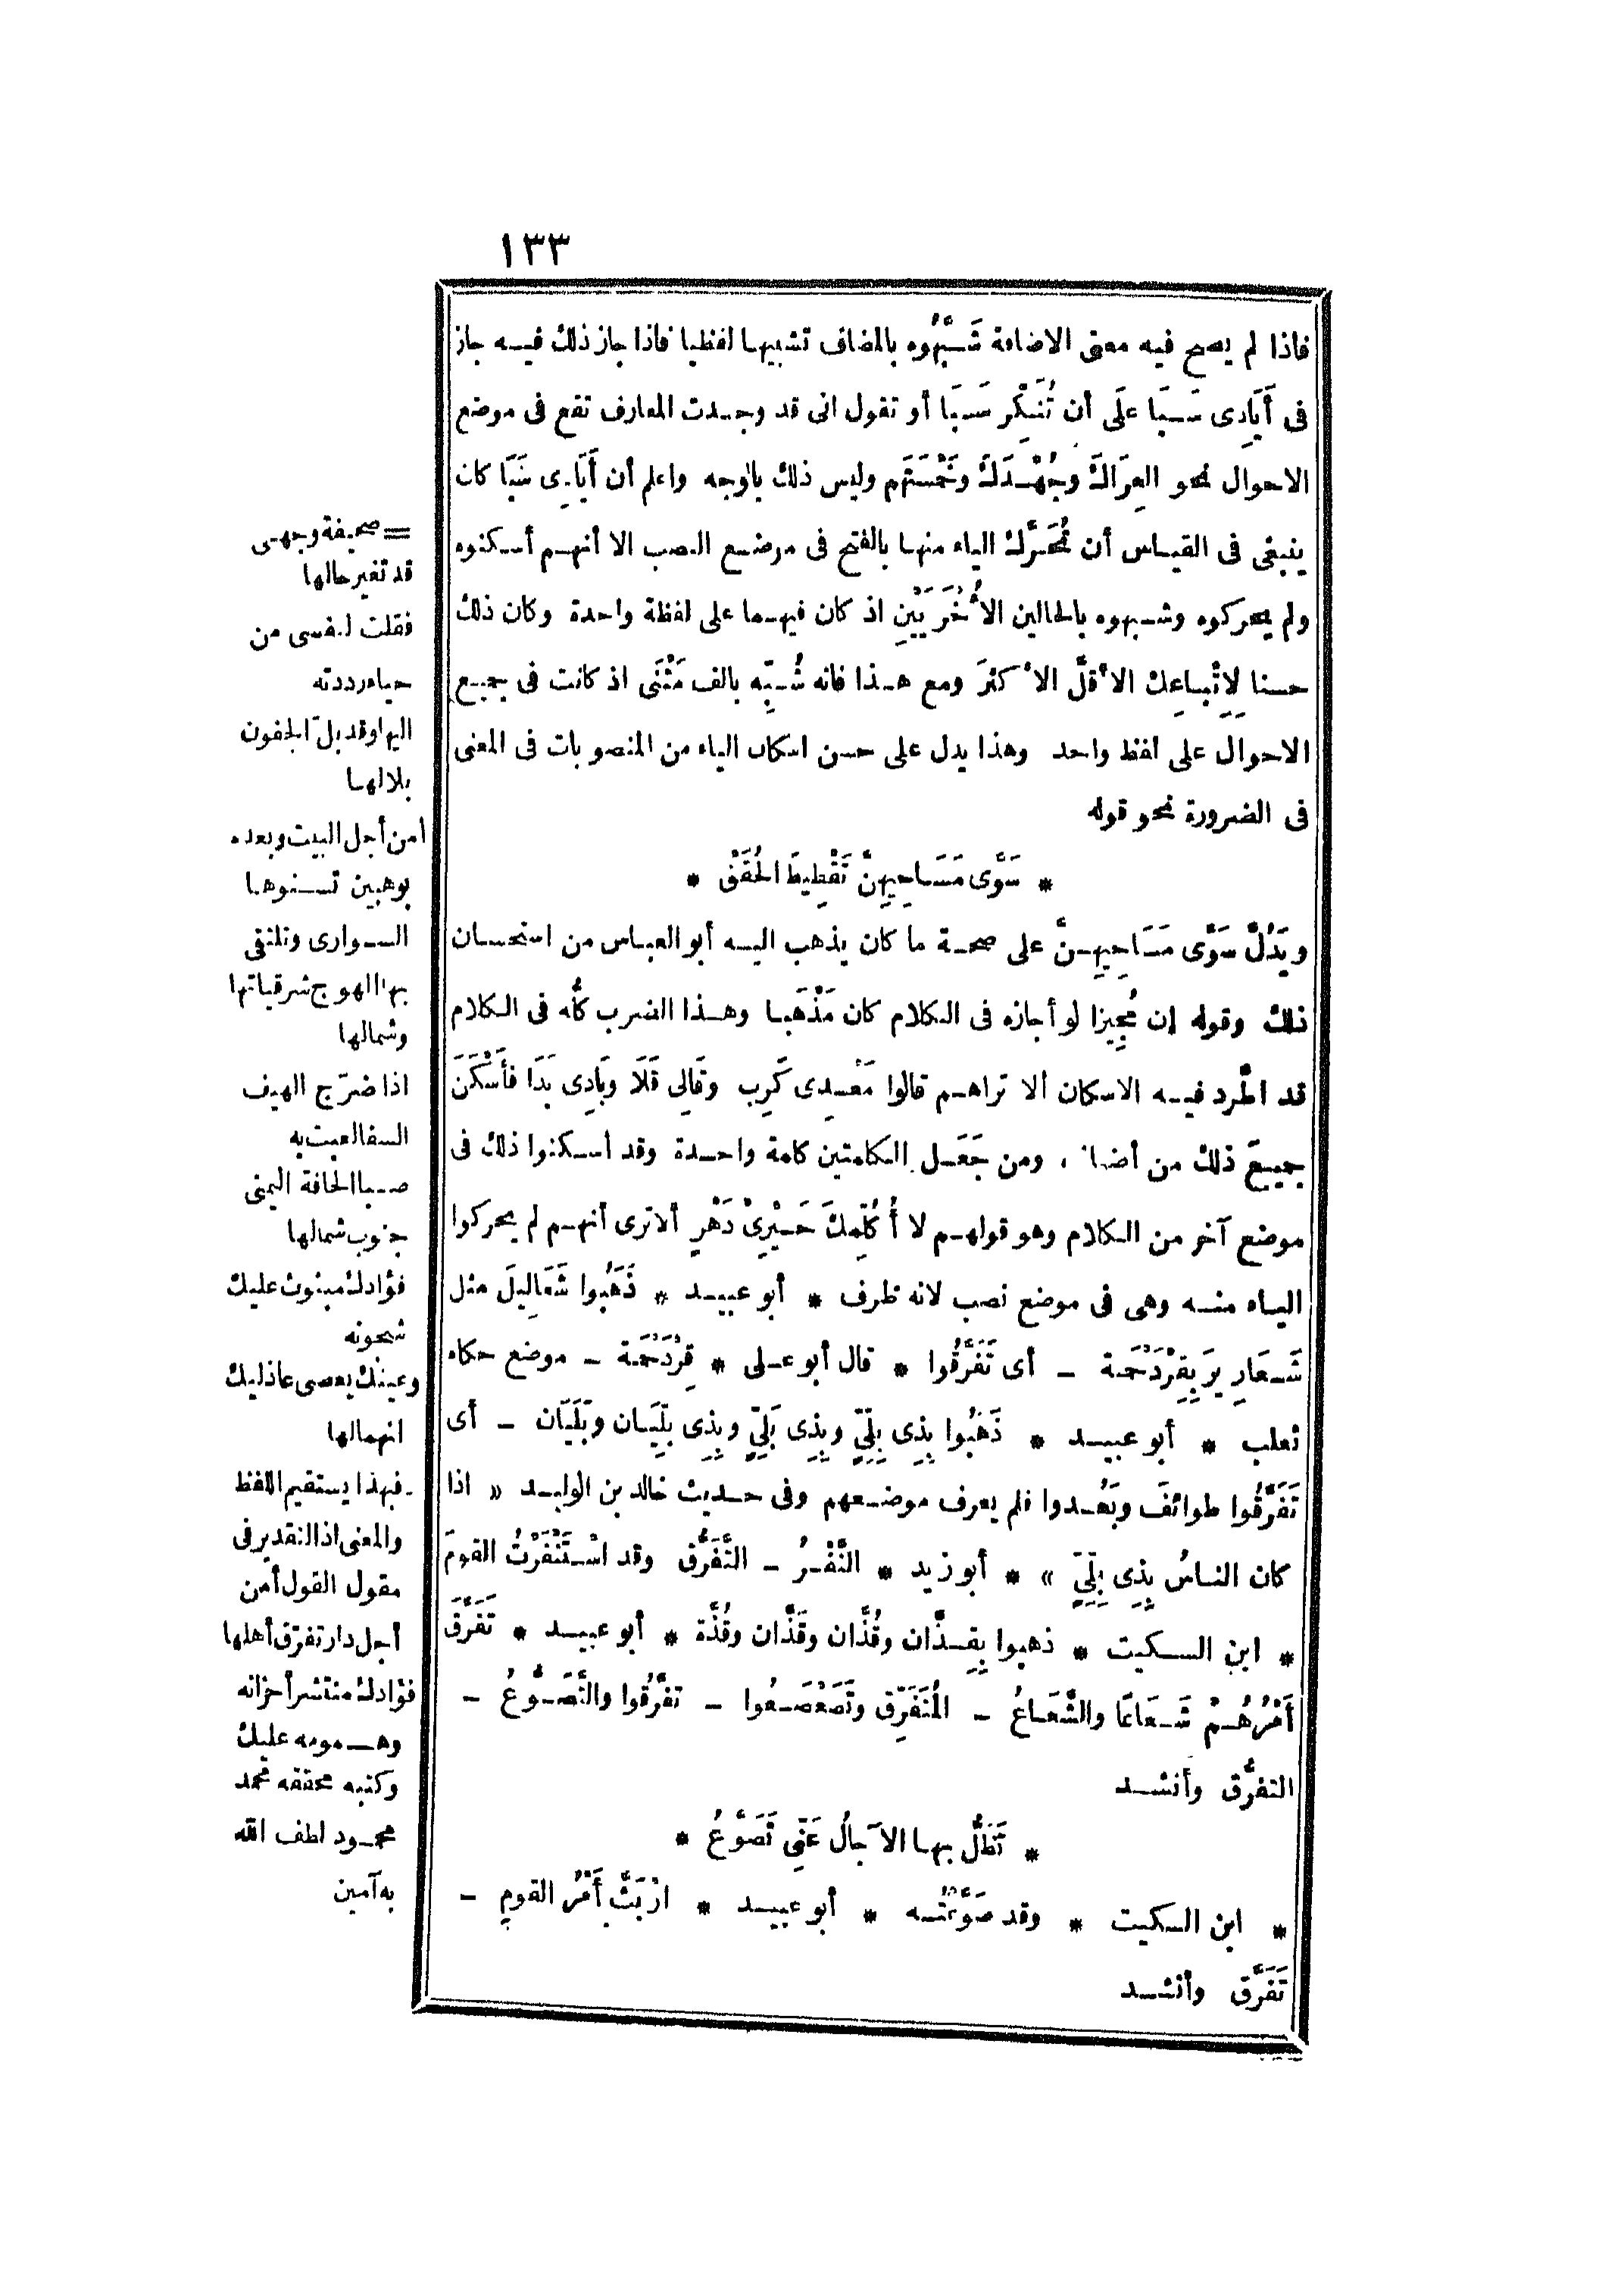 ١٣٣
فاذا لم يصح فيه معنى الاضافة شَبَّهُوه بالمضاف تشبيها لفظيا فاذا جاز ذلك فيه جاز
فى أَيَادِى سَبَا علَى أن تُنَكِّر سَبَا أو تقول انى قد وجدت المعارف تقع فى موضع
الاحوال نحو العِرَاكَ وجُهْدَكَ وخَمْسَتَهم وليس ذلك بالوجه واعلم أن أَيَادِى سَبَا كان
ينبغى فى القياس أن تُحَرَّك الياء منها بالفتح فى موضع النصب الا أنهم أسكنوه
ولم يحركوه وشبهوه بالحالين الأُخْرَيَيْنِ اذ كان فيهما على لفظة واحدة وكان ذلك
حسنا لِاِتْباعِك الأقلَّ الأكثرَ ومع هذا فانه شُبِّه بالف مَثْنَى اذ كانت فى جميع
الاحوال على لفظ واحد وهذا يدل على حسن اسكان الياء من المنصوبات فى المعنى
فى الضرورة نحو قوله
* سَوَّى مَسَاحِيهِنَّ تَقْطِيطَ الحُقَقْ *
ويَدُلُّ سَوَّى مَسَاحِيهِنَّ على صحة ما كان يذهب اليه أبو العباس من استحسان
ذلك وقوله إن مُجِيزا لو أجازه فى الكلام كان مَذْهَبا وهذا الضرب كُلُّه فى الكلام
قد اطَّرد فيه الاسكان ألا تراهم قالوا مَعْدِى كَرِب وقَالِى قَلَا وبَادِى بَدَا فأَسْكَنَ
جميعَ ذلك من أضاف ومن جَعَل الكلمتين كلمة واحدة وقد أسكنوا ذلك فى
موضع آخر من الكلام وهو قولهم لا أُكَلِّمكَ حَيْرِىْ دَهْرٍ ألا ترى أنهم لم يحركوا
الياء منه وهى فى موضع نصب لانه ظرف * أبو عبيد * ذَهَبُوا شَعَالِيلَ مثل
شَعَارِيرَ بِقِرْدَحْمة - أى تَفَرَّقُوا * قال أبو على * قِرْدَحْمَة - موضع حكاه
ثعلب * أبو عبيد * ذَهَبُوا بِذِى بِلِّىٍّ وبِذِى بَلِّىٍّ وبِذِى بِلِّيَان وبَلَيَان - أى
تَفَرَّقُوا طوائفَ وبَعُدوا فلم يعرف موضعهم وفى حديث خالد بن الوليد « اذا
كان الناسُ بِذِى بِلِّىٍّ » * أبو زيد * النَّفْرُ - التَّفَرُّق وقد اسْتَنْفَرْتُ القومَ
* ابن السكيت * ذهبوا بِقِذَّان وقُذَّان وقَذَّان وقُذَّة * أبو عبيد * تَفَرَّقَ
أَمْرُهُمْ شَعَاعًا والشَّعَاعُ - المُتَفَرِّق وتَصَعْصَعُوا - تفَرَّقُوا والتَّصَوُّعُ -
التفرُّق وأنشد
* تَظَلُّ بها الآجالُ عَنِّى تَصَوَّعُ *
* ابن السكيت * وقد صَوَّعْتُه * أبو عبيد * ارْبَثَّ أَمْرُ القومِ -
تَفَرَّق وأنشد
= صحيفة وجهى
قد تغير حالها
فقلت لنفسى من
حياء رددته
اليها وقد بلّ الجفون
بلالها
أمن أجل البيت وبعده
بوهبين تسنوها
السوارى وتلتقى
بها الهوج شرقياتها
وشمالها
اذا ضرّج الهيف
السفا لعبت به
صبا الحافة اليمنى
جنوب شمالها
فؤادك مبثوث عليك
شجونه
وعينك يعصى عاذليك
انهمالها
فبهذا يستقيم اللفظ
والمعنى اذ التقدير فى
مقول القول أمن
أجل دار تفرّق أهلها
فؤادك منتشر أحزانه
وهمومه عليك
وكتبه محققه محمد
محمود لطف الله
به آمين